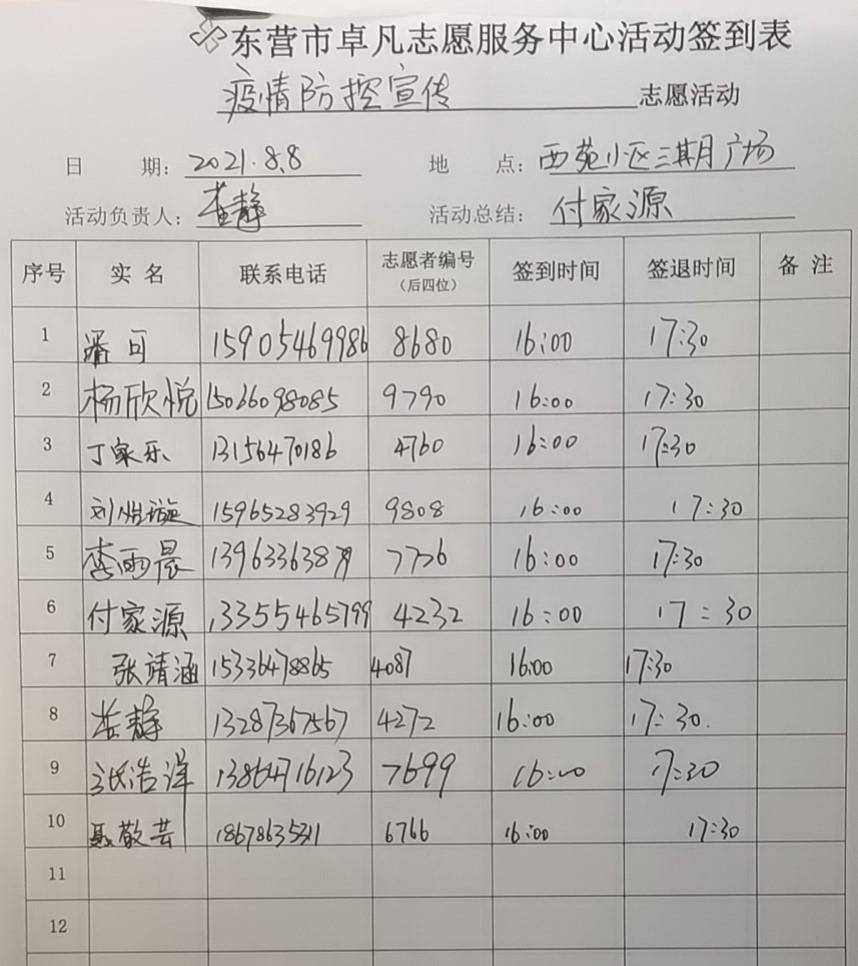 东营市卓凡志愿服务中心活动签到表
疫情防控宣传 志愿活动
日 期: 2021.8.8 地 点: 西苑小区三期广场
活动负责人: 董静 活动总结: 付家源
序号 实 名 联系电话 志愿者编号(后四位) 签到时间 签退时间 备 注
1 潘可 15905469986 8680 16:00 17:30
2 杨欣悦 15066098085 9790 16:00 17:30
3 丁家乐 13156470186 4760 16:00 17:30
4 刘怡璇 15965283929 9808 16:00 17:30
5 李雨晨 7726 16:00 17:30
6 付家源 13355465799 4232 16:00 17:30
7 张靖涵 15336478865 4087 16:00 17:30
8 董静 13287367567 4272 16:00 17:30.
9 张浩洋 13864716123 7699 16:00 17:30
10 聂敬芸 18678635311 6766 16:00 17:30
11
12